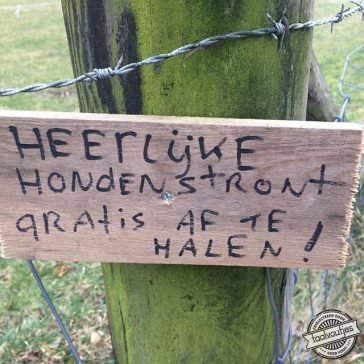 HEERLIJKE
HONDENSTRONT
GRATIS AF TE
HALEN!
taalvoutjes